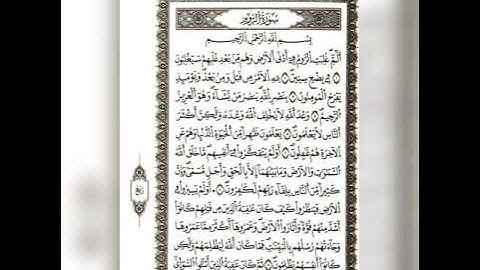 سُورَةُ الرُّومِ
بِسْمِ اللَّهِ الرَّحْمَٰنِ الرَّحِيمِ
الٓمٓ غُلِبَتِ الرُّومُ فِي أَدْنَى الْأَرْضِ وَهُم مِّن بَعْدِ غَلَبِهِمْ سَيَغْلِبُونَ
فِي بِضْعِ سِنِينَ لِلَّهِ الْأَمْرُ مِن قَبْلُ وَمِن بَعْدُ وَيَوْمَئِذٍ
يَفْرَحُ الْمُؤْمِنُونَ بِنَصْرِ اللَّهِ يَنصُرُ مَن يَشَاءُ وَهُوَ الْعَزِيزُ
الرَّحِيمُ وَعْدَ اللَّهِ لَا يُخْلِفُ اللَّهُ وَعْدَهُ وَلَٰكِنَّ أَكْثَرَ
النَّاسِ لَا يَعْلَمُونَ يَعْلَمُونَ ظَاهِرًا مِّنَ الْحَيَوٰةِ الدُّنْيَا وَهُمْ عَنِ
الْآخِرَةِ هُمْ غَٰفِلُونَ أَوَلَمْ يَتَفَكَّرُوا فِي أَنفُسِهِم مَّا خَلَقَ اللَّهُ
السَّمَٰوَٰتِ وَالْأَرْضَ وَمَا بَيْنَهُمَا إِلَّا بِالْحَقِّ وَأَجَلٍ مُّسَمًّى وَإِنَّ
كَثِيرًا مِّنَ النَّاسِ بِلِقَاءِ رَبِّهِمْ لَكَٰفِرُونَ أَوَلَمْ يَسِيرُوا فِي
الْأَرْضِ فَيَنظُرُوا كَيْفَ كَانَ عَٰقِبَةُ الَّذِينَ مِن قَبْلِهِمْ كَانُوا
أَشَدَّ مِنْهُمْ قُوَّةً وَأَثَارُوا الْأَرْضَ وَعَمَرُوهَا أَكْثَرَ مِمَّا عَمَرُوهَا
وَجَاءَتْهُمْ رُسُلُهُم بِالْبَيِّنَٰتِ فَمَا كَانَ اللَّهُ لِيَظْلِمَهُمْ وَلَٰكِن
كَانُوا أَنفُسَهُمْ يَظْلِمُونَ ثُمَّ كَانَ عَٰقِبَةَ الَّذِينَ أَسَٰٓـُٔوا السُّوأَىٰ